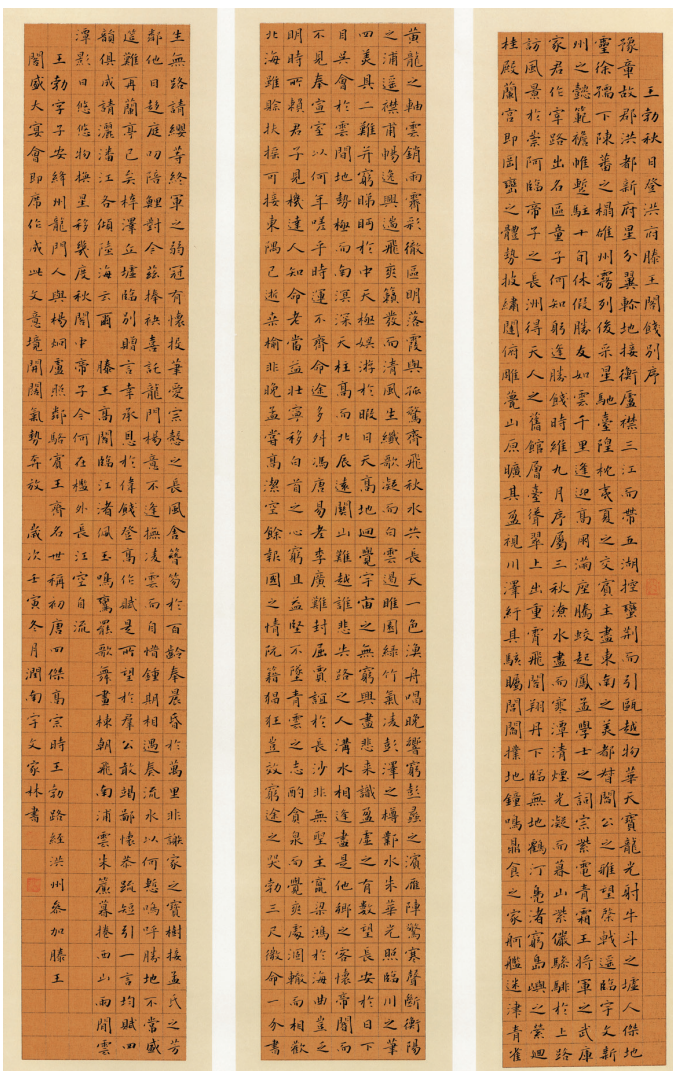 王勃秋日登洪府滕王閣餞別序
豫章故郡洪都新府星分翼軫地接衡廬襟三江而帶五湖控蠻荊而引甌越物華天寶龍光射牛斗之墟人傑地
靈徐孺下陳蕃之榻雄州霧列俊采星馳臺隍枕夷夏之交賓主盡東南之美都督閻公之雅望棨戟遙臨宇文新
州之懿範襜帷暫駐十旬休假勝友如雲千里逢迎高朋滿座騰蛟起鳳孟學士之詞宗紫電青霜王將軍之武庫
家君作宰路出名區童子何知躬逢勝餞時維九月序屬三秋潦水盡而寒潭清煙光凝而暮山紫儼驂騑於上路
訪風景於崇阿臨帝子之長洲得天人之舊館層臺聳翠上出重霄飛閣翔丹下臨無地鶴汀鳧渚窮島嶼之縈迴
桂殿蘭宮即岡巒之體勢披繡闥俯雕甍山原曠其盈視川澤紆其駭矚閭閻撲地鐘鳴鼎食之家舸艦迷津青雀
黃龍之軸雲銷雨霽彩徹區明落霞與孤鶩齊飛秋水共長天一色漁舟唱晚響窮彭蠡之濱雁陣驚寒聲斷衡陽
之浦遙襟甫暢逸興遄飛爽籟發而清風生纖歌凝而白雲遏睢園綠竹氣凌彭澤之樽鄴水朱華光照臨川之筆
四美具二難并窮睇眄於中天極娛游於暇日天高地迥覺宇宙之無窮興盡悲來識盈虛之有數望長安於日下
目吳會於雲間地勢極而南溟深天柱高而北辰遠關山難越誰悲失路之人溝水相逢盡是他鄉之客懷帝閽而
不見奉宣室以何年嗟乎時運不齊命途多舛馮唐易老李廣難封屈賈誼於長沙非無聖主竄梁鴻於海曲豈乏
明時所賴君子見機達人知命老當益壯寧移白首之心窮且益堅不墜青雲之志酌貪泉而覺爽處涸轍而相歡
北海雖賒扶搖可接東隅已逝桑榆非晚孟嘗高潔空餘報國之情阮籍猖狂豈效窮途之哭勃三尺微命一介書
生無路請纓等終軍之弱冠有懷投筆愛宗愨之長風舍簪笏於百齡奉晨昏於萬里非謝家之寶樹接孟氏之芳
鄰他日趨庭叨陪鯉對今茲捧袂喜託龍門楊意不逢撫凌雲而自惜鍾期相遇奏流水以何慙嗚呼勝地不常盛
筵難再蘭亭已矣梓澤丘墟臨別贈言幸承恩於偉餞登高作賦是所望於羣公敢竭鄙懷恭疏短引一言均賦四
韻俱成請灑潘江各傾陸海云爾 滕王高閣臨江渚佩玉鳴鸞罷歌舞畫棟朝飛南浦雲朱簾暮捲西山雨閒雲
潭影日悠悠物換星移幾度秋閣中帝子今何在檻外長江空自流
王勃字子安絳州龍門人與楊炯盧照鄰駱賓王齊名世稱初唐四傑高宗時王勃路經洪州參加滕王
閣盛大宴會即席作成此文意境開闊氣勢奔放 歲次壬寅冬月潤南宇文家林書